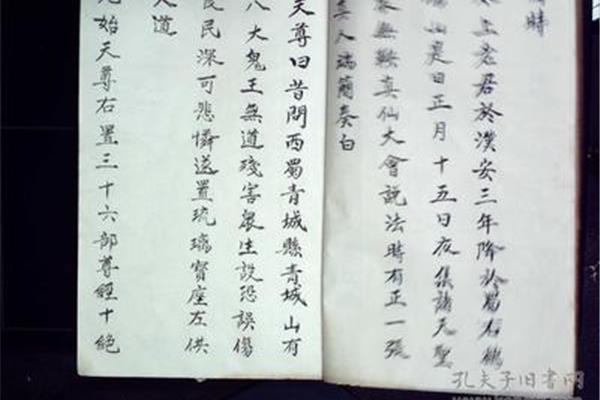 時
上老君於漢安三年降於蜀右鶴
山是日正月十五日夜集諸天聖
無鞅真仙大會說法時有正一張
真人端簡奏白
天尊曰昔聞西蜀青城縣青城山有
八大鬼王無道殘害眾生設恐誤傷
民深可悲憐遂置琉璃寶座左供
大道
元始天尊右置三十六部尊經十絕
孔夫子旧书网